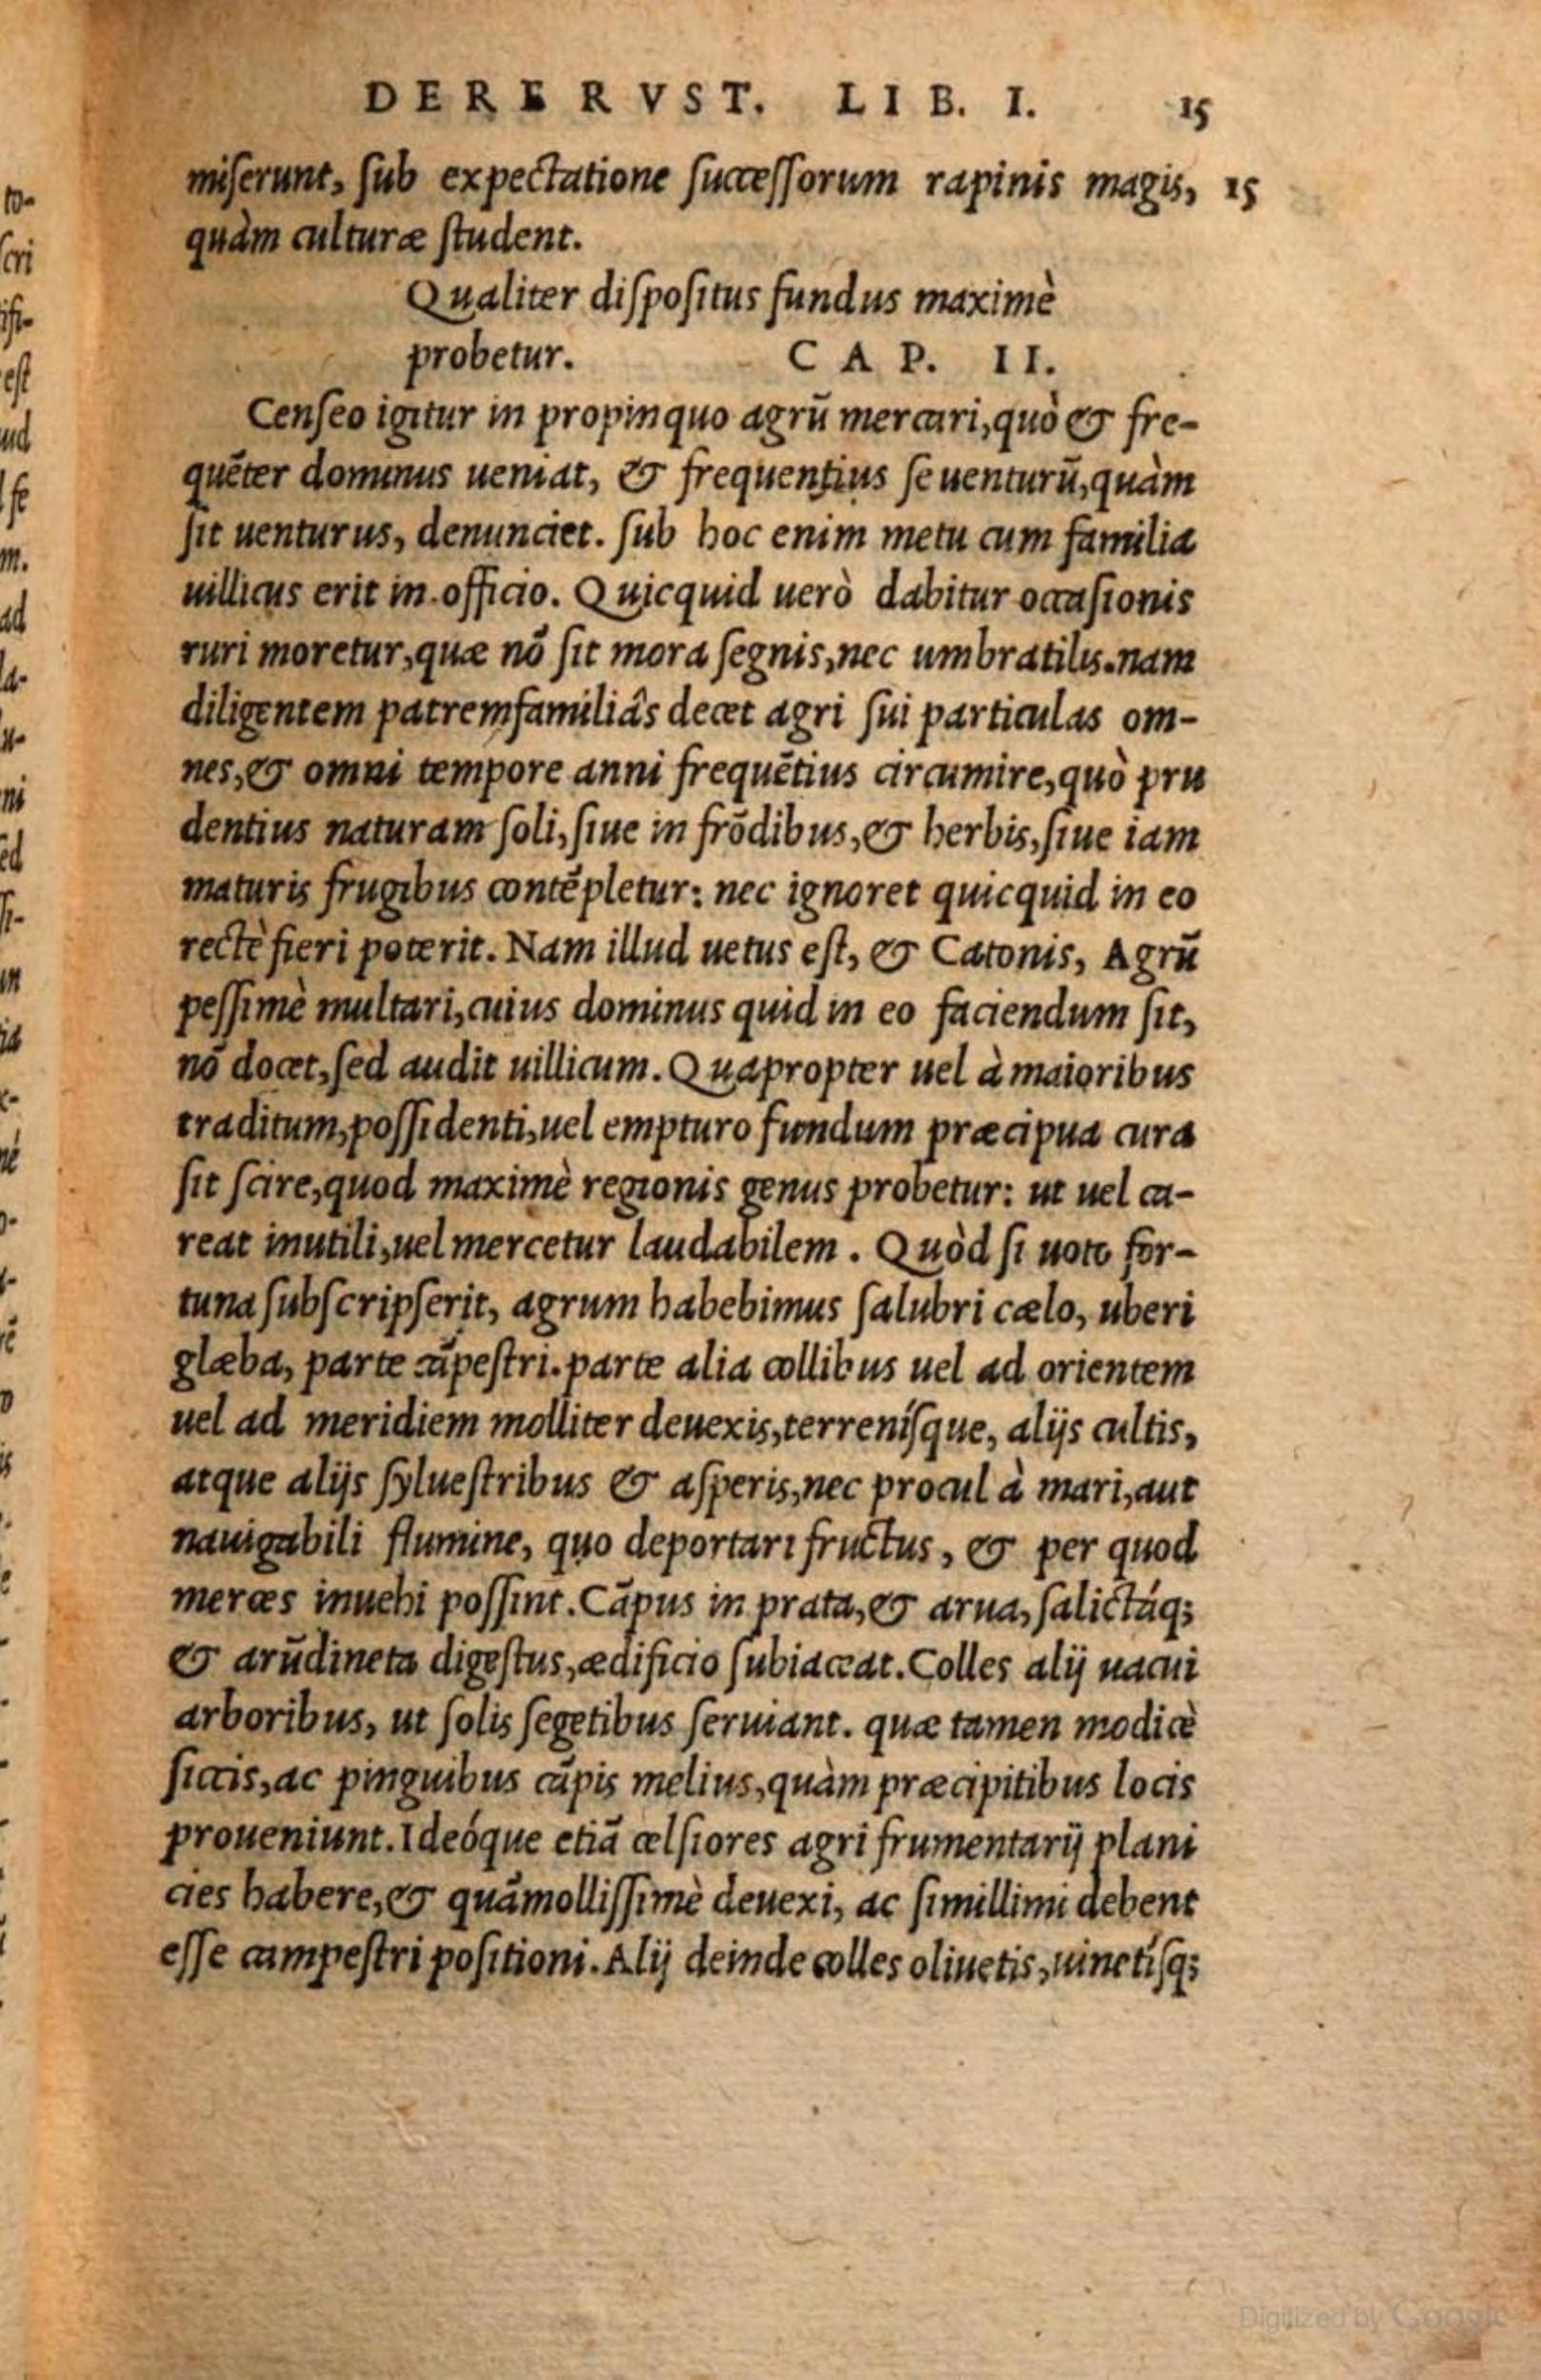 DERERVST. LIB. I. 15
miſerunt, ſub expectatione ſucceſſorum rapinis magis, 15
quàm culturæ ſtudent.
Qualiter diſpoſitus fundus maximè
probetur. CAP. II.
Cenſeo igitur in propinquo agrũ mercari, quò & fre-
quẽter dominus ueniat, & frequentius ſe uenturũ, quàm
ſit uenturus, denunciet. ſub hoc enim metu cum familia
uillicus erit in officio. Quicquid uerò dabitur occaſionis
ruri moretur, quæ nõ ſit mora ſegnis, nec umbratilis. nam
diligentem patremfamiliâs decet agri ſui particulas om-
nes, & omni tempore anni frequẽtius circumire, quò pru
dentius naturam ſoli, ſiue in frõdibus, & herbis, ſiue iam
maturis frugibus contẽpletur: nec ignoret quicquid in eo
rectè fieri poterit. Nam illud uetus eſt, & Catonis, Agrũ
peſſimè multari, cuius dominus quid in eo faciendum ſit,
nõ docet, ſed audit uillicum. Quapropter uel à maioribus
traditum, poſſidenti, uel empturo fundum præcipua cura
ſit ſcire, quod maximè regionis genus probetur: ut uel ca-
reat inutili, uel mercetur laudabilem. Quòd ſi uoto for-
tuna ſubſcripſerit, agrum habebimus ſalubri cælo, uberi
glæba, parte cãpeſtri. parte alia collibus uel ad orientem
uel ad meridiem molliter deuexis, terreníſque, alijs cultis,
atque alijs ſylueſtribus & aſperis, nec procul à mari, aut
nauigabili flumine, quo deportari fructus, & per quod
merces inuehi poſſint. Cãpus in prata, & arua, ſalictáq;
& arũdineta digeſtus, ædificio ſubiaceat. Colles alij uacui
arboribus, ut ſolis ſegetibus ſeruiant. quæ tamen modicè
ſiccis, ac pinguibus cãpis melius, quàm præcipitibus locis
proueniunt. Ideóque etiã celſiores agri frumentarij plani
cies habere, & quãmolliſſimè deuexi, ac ſimillimi debent
eſſe campeſtri poſitioni. Alij deinde colles oliuetis, uinetíſq;
Digitized by Google